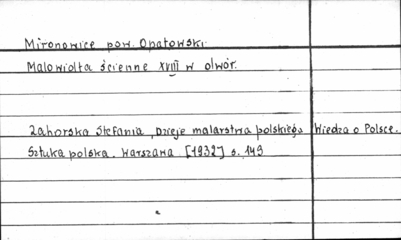 Mironowice pow. Opatowski.
Malowidła ścienne XVIII w otwór.
Zahorska Stefania, Dzieje malarstwa polskiego Wiedza o Polsce.
Sztuka polska. Warszawa [1932] s. 149